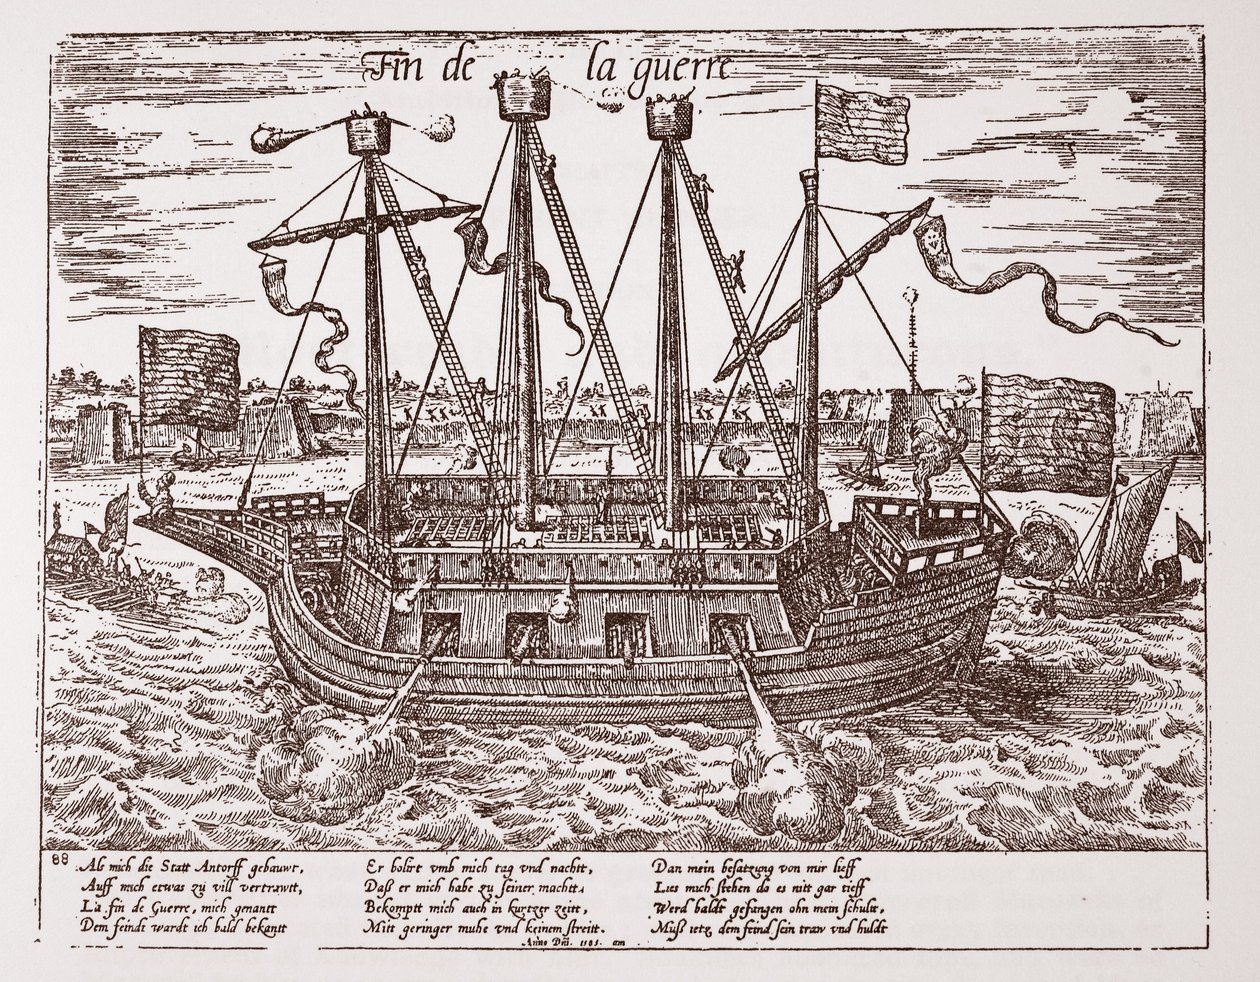 Fin de la guerre
88
Ab mich die Statt Antorff gebauwt,
Auff mich etwas zu vill vertrawtt,
La fin de Guerre, mich genantt
Dem feindt wardt ich bald bekantt
Er bolirt vmb mich tag vnd nachtt,
Daß er mich habe zu seiner machtt.
Bekomptt mich auch in kurtzer zeitt,
Mitt geringer muhe vnd keinem streitt.
Dan mein besatzung von mir lieff
Lies mich stehen da es nitt gar tieff
Werd baldt gefangen ohn mein schultt,
Muß ietz dem feind sein traw vnd huldt
Anno Dni. 1585. am